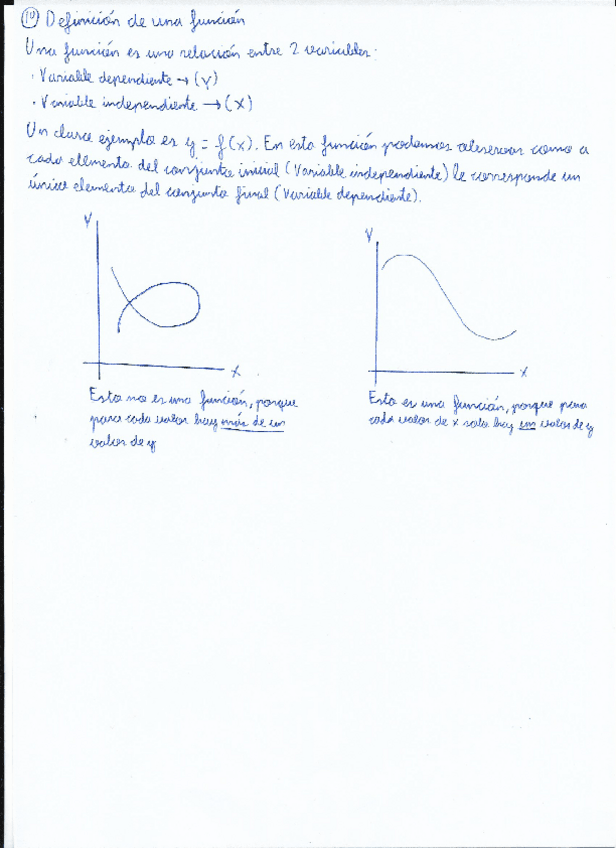 1º Definición de una función
Una función es una relación entre 2 variables:
· Variable dependiente → (Y)
· Variable independiente → (X)
Un claro ejemplo es y = f(x). En esta función podemos observar como a
cada elemento del conjunto inicial (Variable independiente) le corresponde un
único elemento del conjunto final (Variable dependiente).
Y
X
Esto no es una función, porque
para cada valor hay más de un
valor de y
Y
X
Esto es una función, porque para
cada valor de x solo hay un valor de y